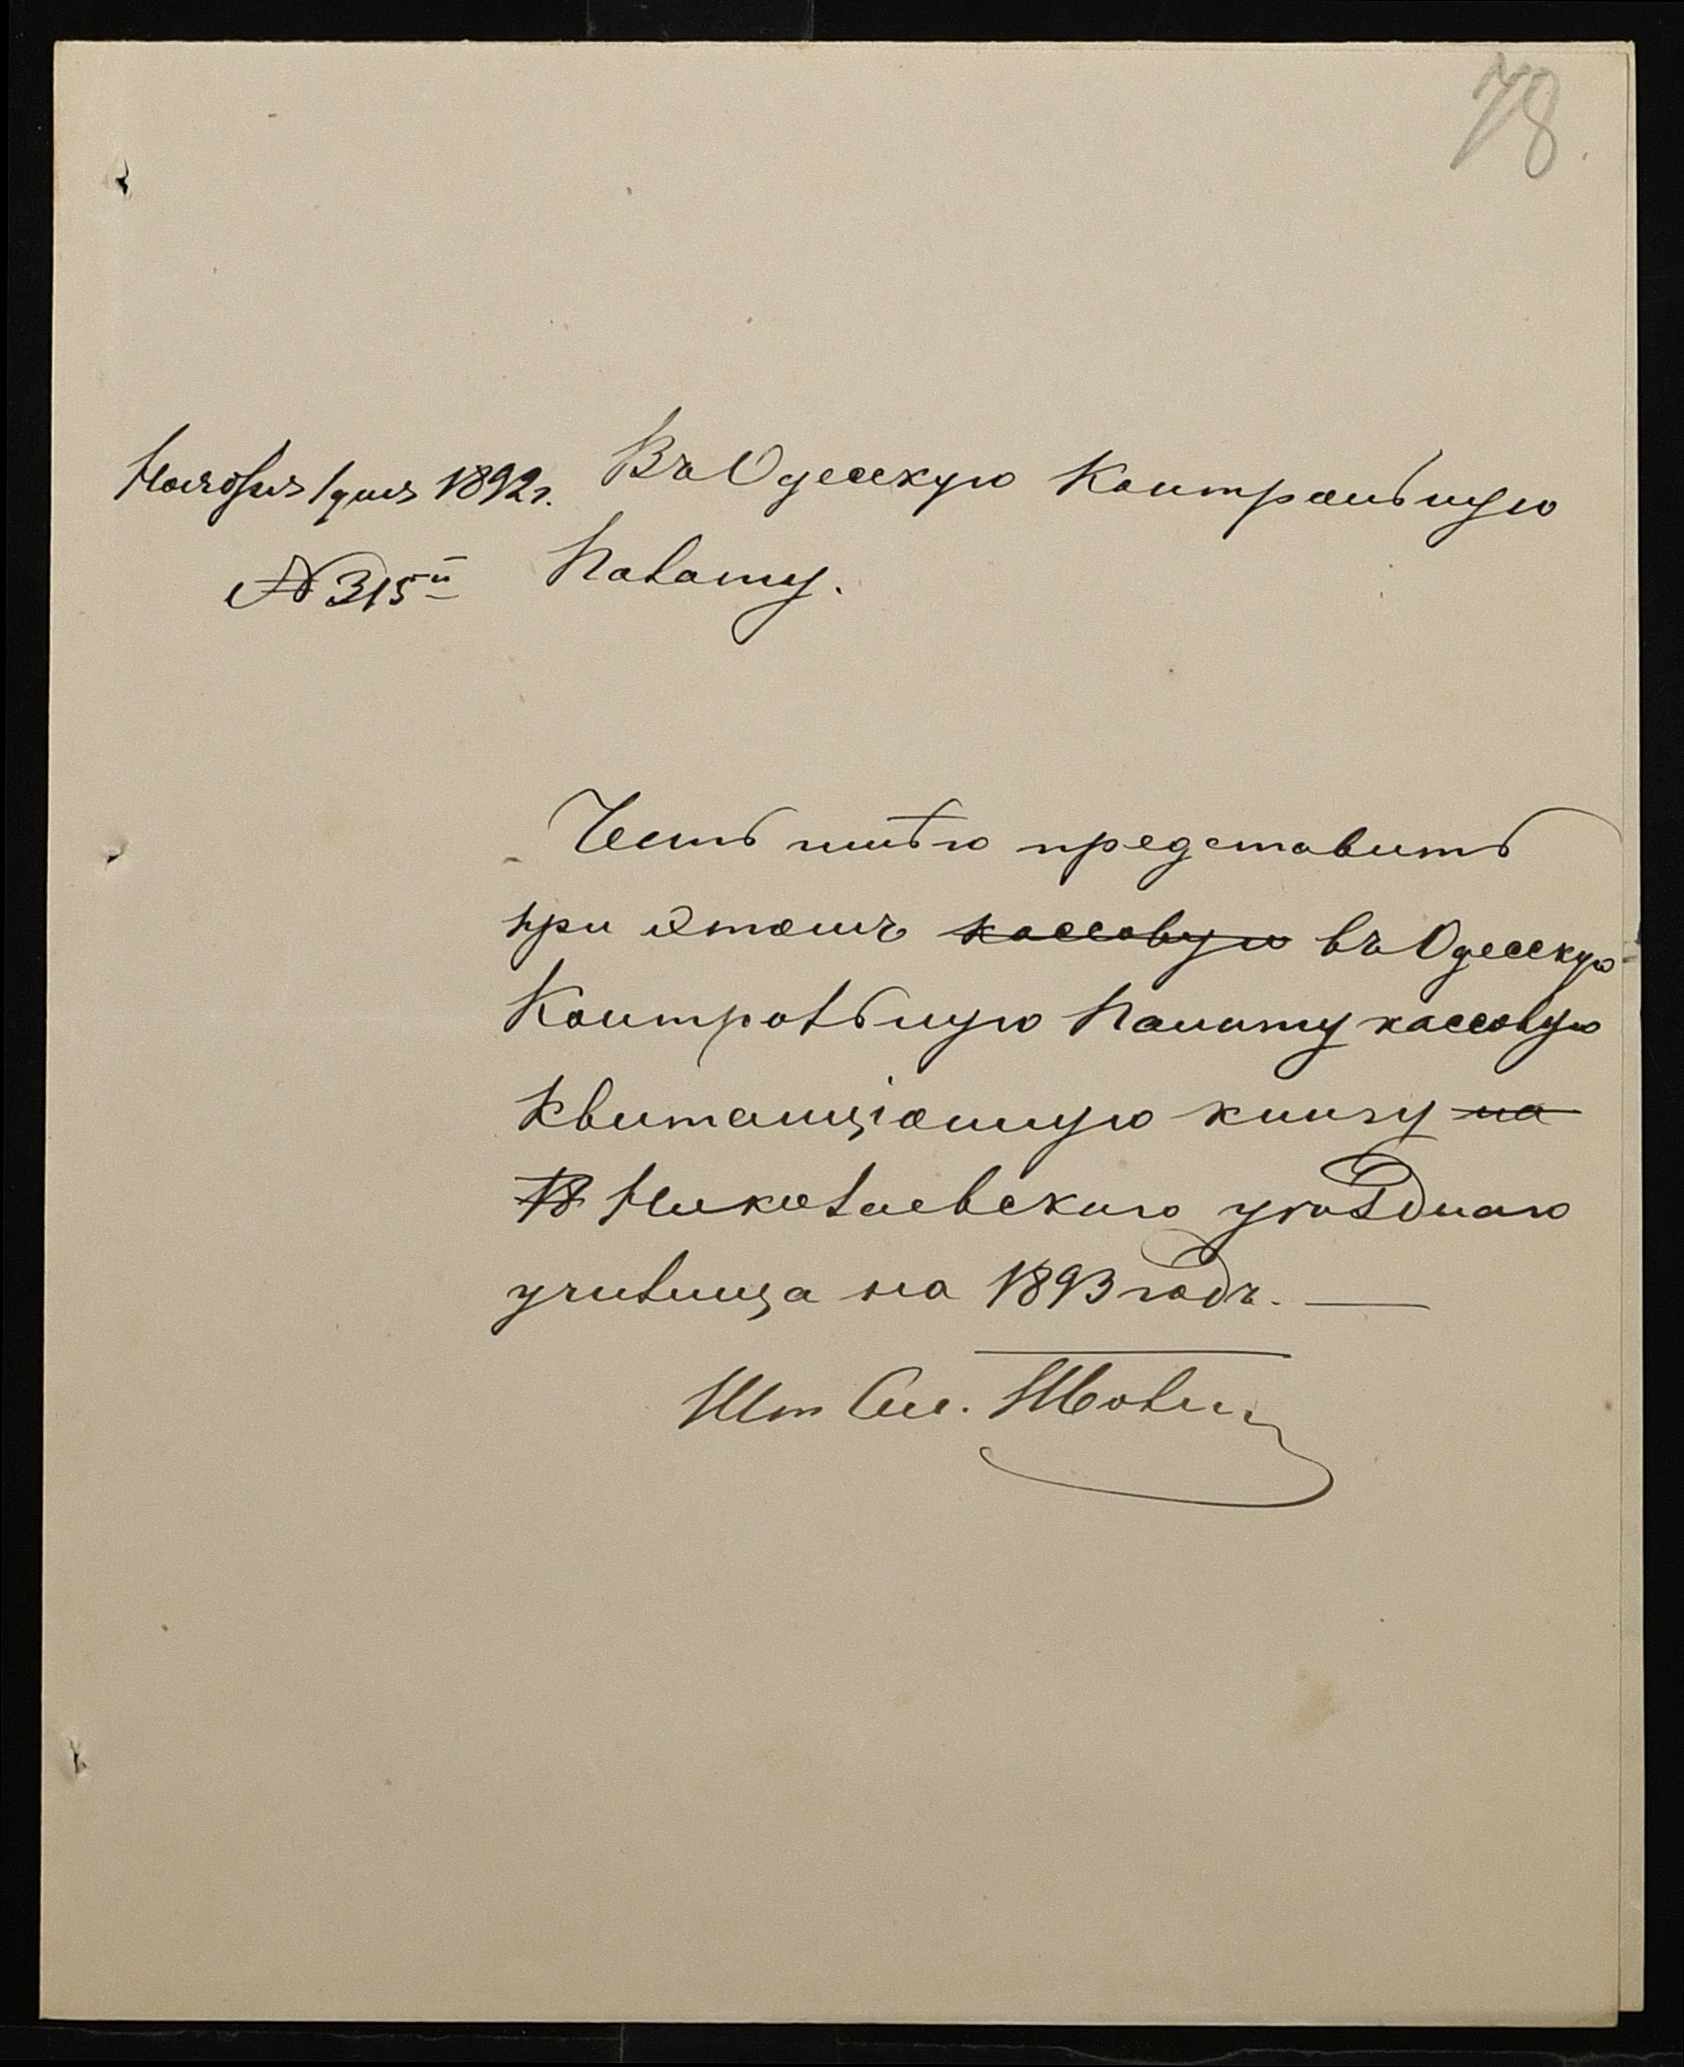 78
Ноября 1 дня 1892 г.
№ 315й
Въ Одесскую Контрольную
Палату.
Честь имѣю представить
при этомъ кассовую въ Одесскую
Контрольную Палату кассовую
квитанціонную книгу на
18 Николаевского уѣзднаго
училища на 1893 годъ. —
Шт. См.